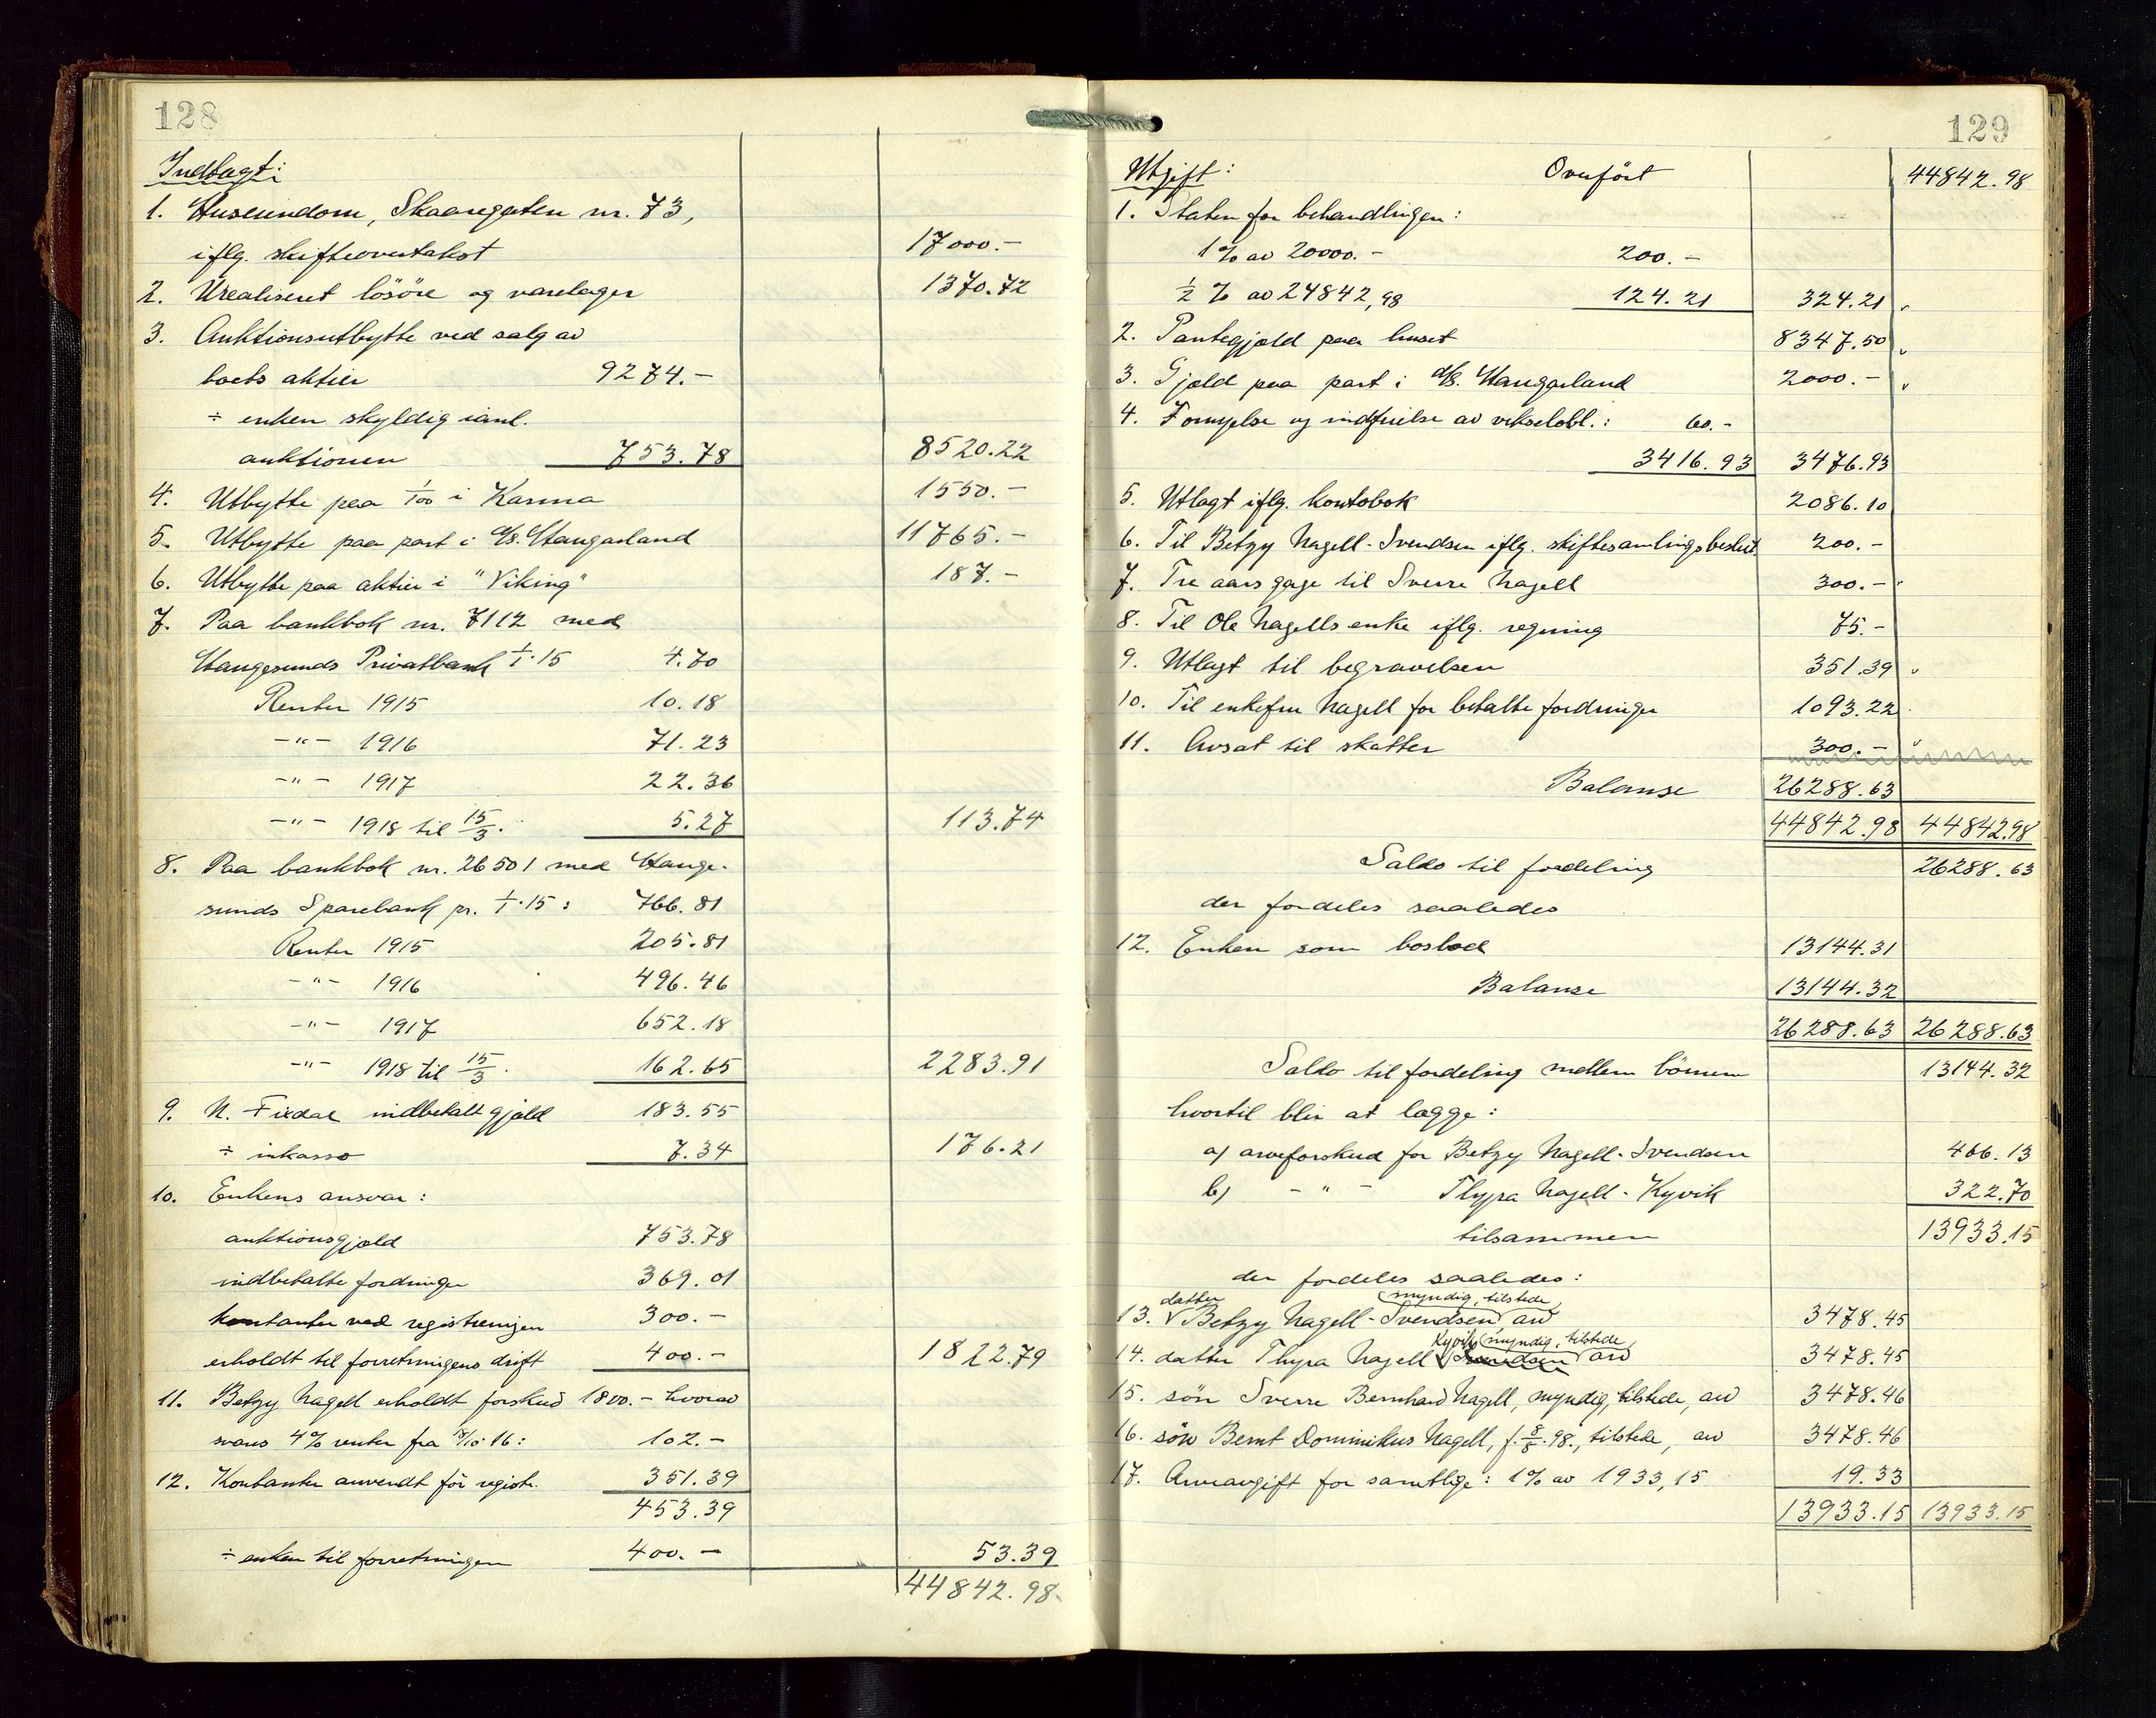 128
Indtægt:
1. Huseiendom, Skaaregaten nr. 73,
iflg. skifteovertakst 17000.-
2. Urealiseret lösöre og varelager 1370.72
3. Auktionsutbytte ved salg av
boets aktier 9274.-
÷ enken skyldig ianl.
auktionen 753.78 8520.22
4. Utbytte paa 1/100 i Karma 1550.-
5. Utbytte paa part i d/s. Haugarland 11765.-
6. Utbytte paa aktier i "Viking" 187.-
7. Paa bankbok nr. 7112 med
Haugesunds Privatbank 1/1.15 4.70
Renter 1915 10.18
-"- 1916 71.23
-"- 1917 22.36
-"- 1918 til 15/3. 5.27 113.74
8. Paa bankbok nr. 26501 med Hauge-
sunds Sparebank pr. 1/1.15: 766.81
Renter 1915 205.81
-"- 1916 496.46
-"- 1917 652.18
-"- 1918 til 15/3. 162.65 2283.91
9. N. indbetalt gjæld 183.55
÷ inkasso 7.34 176.21
10. Enkens ansvar:
auktionsgjæld 753.78
indbetalte fordringer 369.01
kontanter ved registreringen 300.-
erholdt til forretningens drift 400.- 1822.79
11. Betzy Nagell erholdt forskud 1800.- hvorav
svares 4% renter fra 16: 102.-
12. Kontanter anvendt för registr. 351.39
453.39
÷ enken til forretningen 400.- 53.39
44842.98
129
Utgift: Overfört 44842.98
1. Staten for behandlingen:
1% av 20000.- 200.-
1/2 % av 24842,98 124.21 324.21
2. Pantegjæld paa huset 8347.50
3. Gjæld paa part i d/s. Haugarland 2000.-
4. Fornyelse og indfrielse av vekselobl.: 60.-
3416.93 3476.93
5. Utlagt iflg. kontobok 2086.10
6. Til Betzy Nagell-Svendsen iflg. skiftesamlingsbeslut. 200.-
7. Tre aars gage til Sverre Nagell 300.-
8. Til Ole Nagells enke iflg. regning 75.-
9. Utlagt til begravelsen 351.39
10. Til enkefru Nagell for betalte fordringer 1093.22
11. Avsat til skatter 300.-
Balanse 26288.63
44842.98 44842.98
Saldo til fordeling 26288.63
der fordeles saaledes
12. Enken som boslod 13144.31
Balanse 13144.32
26288.63 26288.63
Saldo til fordeling mellem börnene 13144.32
hvortil blir at lægge:
a) arveforskud for Betzy Nagell-Svendsen 466.13
b) -"- Thyra Nagell-Kyvik 322.70
tilsammen 13933.15
der fordeles saaledes:
13. datter Betzy Nagell-Svendsen, myndig, tilstede, arv 3478.45
14. datter Thyra Nagell Kyvik, myndig, tilstede, arv 3478.45
15. sön Sverre Bernhard Nagell, myndig, tilstede, arv 3478.46
16. sön Bernt Dominikus Nagell, f. 8/8.98., tilstede, arv 3478.46
17. Arveavgift for samtlige: 1% av 1933,15 19.33
13933.15 13933.15